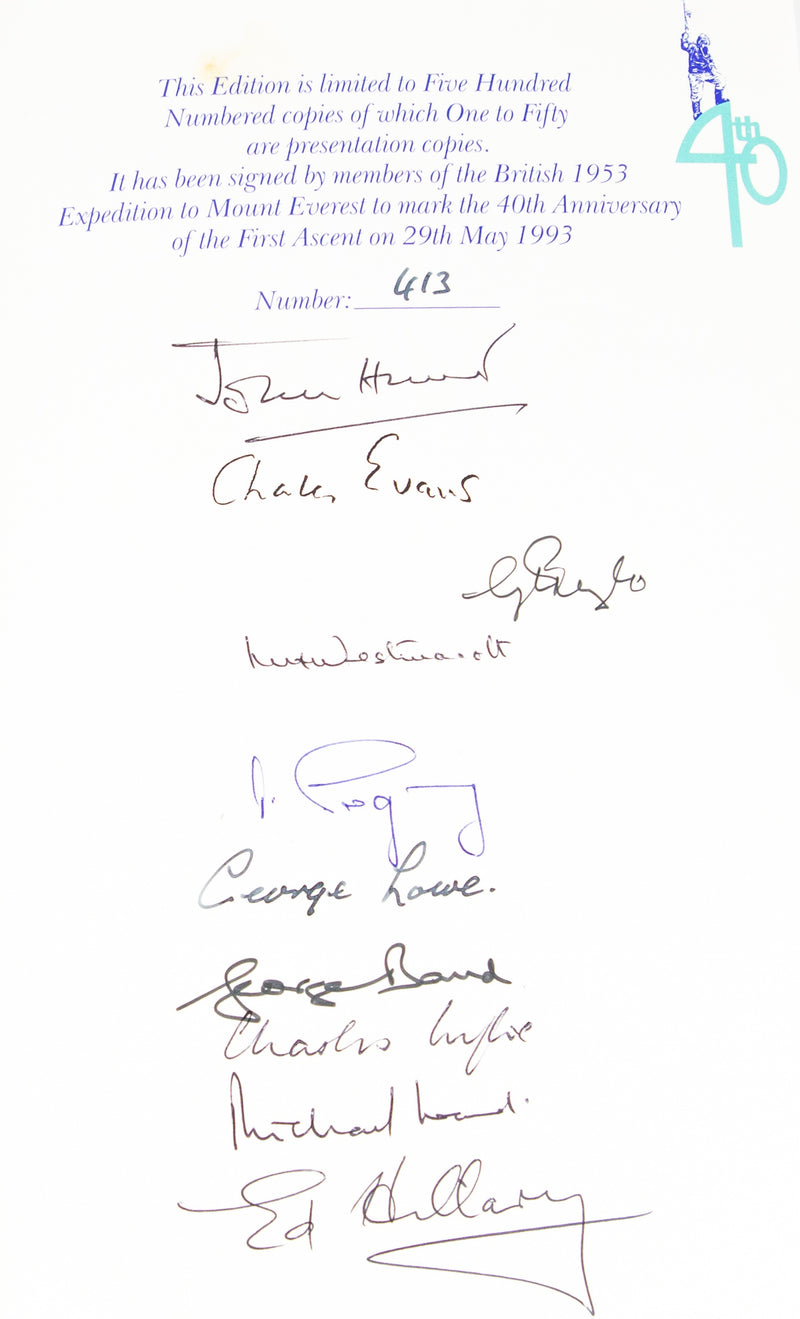 This Edition is limited to Five Hundred
Numbered copies of which One to Fifty
are presentation copies.
It has been signed by members of the British 1953
Expedition to Mount Everest to mark the 40th Anniversary
of the First Ascent on 29th May 1993
40th
Number: 413
John Hunt
Charles Evans
Westmacott
George Lowe.
George Band
Charles Wylie
Michael Ward.
Ed Hillary